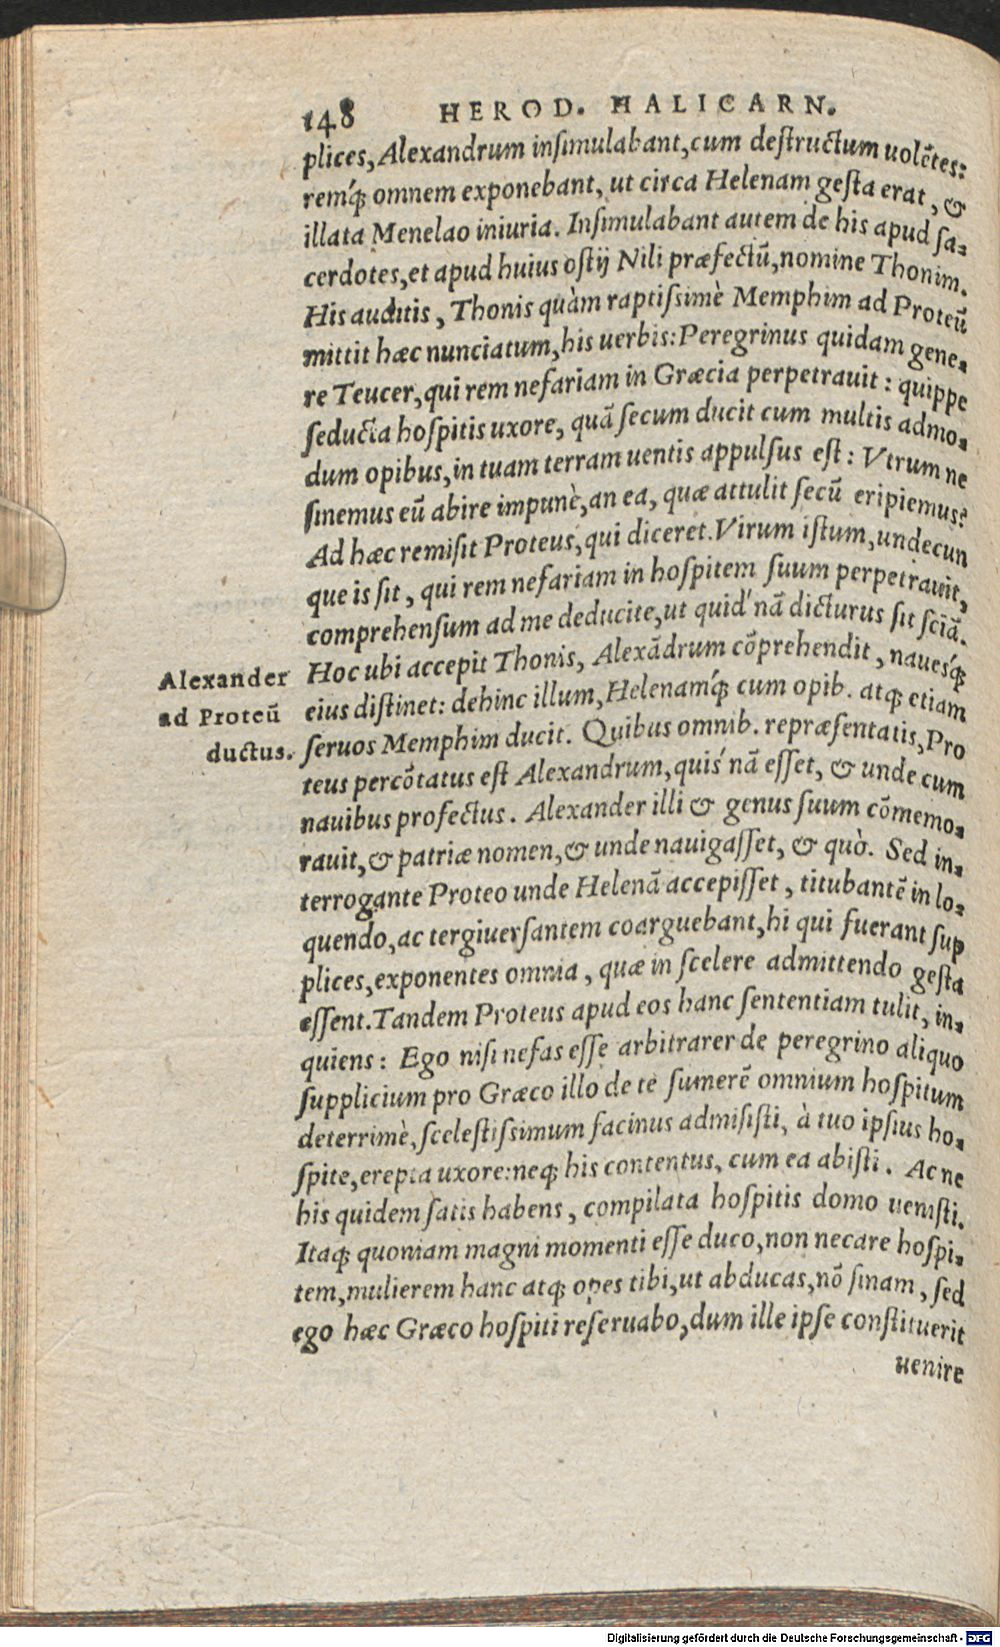 148 HEROD. HALICARN.
plices, Alexandrum insimulabant, cum destructum uolẽtes:
remq́; omnem exponebant, ut circa Helenam gesta erat, &
illata Menelao iniuria. Insimulabant autem de his apud sa-
cerdotes, et apud huius ostij Nili præfectũ, nomine Thonim.
His auditis, Thonis quàm raptissimè Memphim ad Proteũ
mittit hæc nunciatum, his uerbis: Peregrinus quidam gene-
re Teucer, qui rem nefariam in Græcia perpetrauit: quippe
seducta hospitis uxore, quã secum ducit cum multis admo-
dum opibus, in tuam terram uentis appulsus est: Vtrum ne
sinemus eũ abire impunè, an ea, quæ attulit secũ eripiemus?
Ad hæc remisit Proteus, qui diceret. Virum istum, undecun
que is sit, qui rem nefariam in hospitem suum perpetrauit,
comprehensum ad me deducite, ut quid'nã dicturus sit sciã.
Alexander
ad Proteũ
ductus.
Hoc ubi accepit Thonis, Alexãdrum cõprehendit, nauesq́;
eius distinet: dehinc illum, Helenamq́; cum opib. atq; etiam
seruos Memphim ducit. Quibus omnib. repræsentatis, Pro
teus percõtatus est Alexandrum, quis'nã esset, & unde cum
nauibus profectus. Alexander illi & genus suum cõmemo-
rauit, & patriæ nomen, & unde nauigasset, & quò. Sed in-
terrogante Proteo unde Helenã accepisset, titubantẽ in lo-
quendo, ac tergiuersantem coarguebant, hi qui fuerant sup
plices, exponentes omnia, quæ in scelere admittendo gesta
essent. Tandem Proteus apud eos hanc sententiam tulit, in-
quiens: Ego nisi nefas esse arbitrarer de peregrino aliquo
supplicium pro Græco illo de te sumerẽ omnium hospitum
deterrimè, scelestissimum facinus admisisti, à tuo ipsius ho-
spite, erepta uxore: neq; his contentus, cum ea abisti. Ac ne
his quidem satis habens, compilata hospitis domo uenisti.
Itaq; quoniam magni momenti esse duco, non necare hospi-
tem, mulierem hanc atq; opes tibi, ut abducas, nõ sinam, sed
ego hæc Græco hospiti reseruabo, dum ille ipse constituerit
uenire
Digitalisierung gefördert durch die Deutsche Forschungsgemeinschaft - DFG